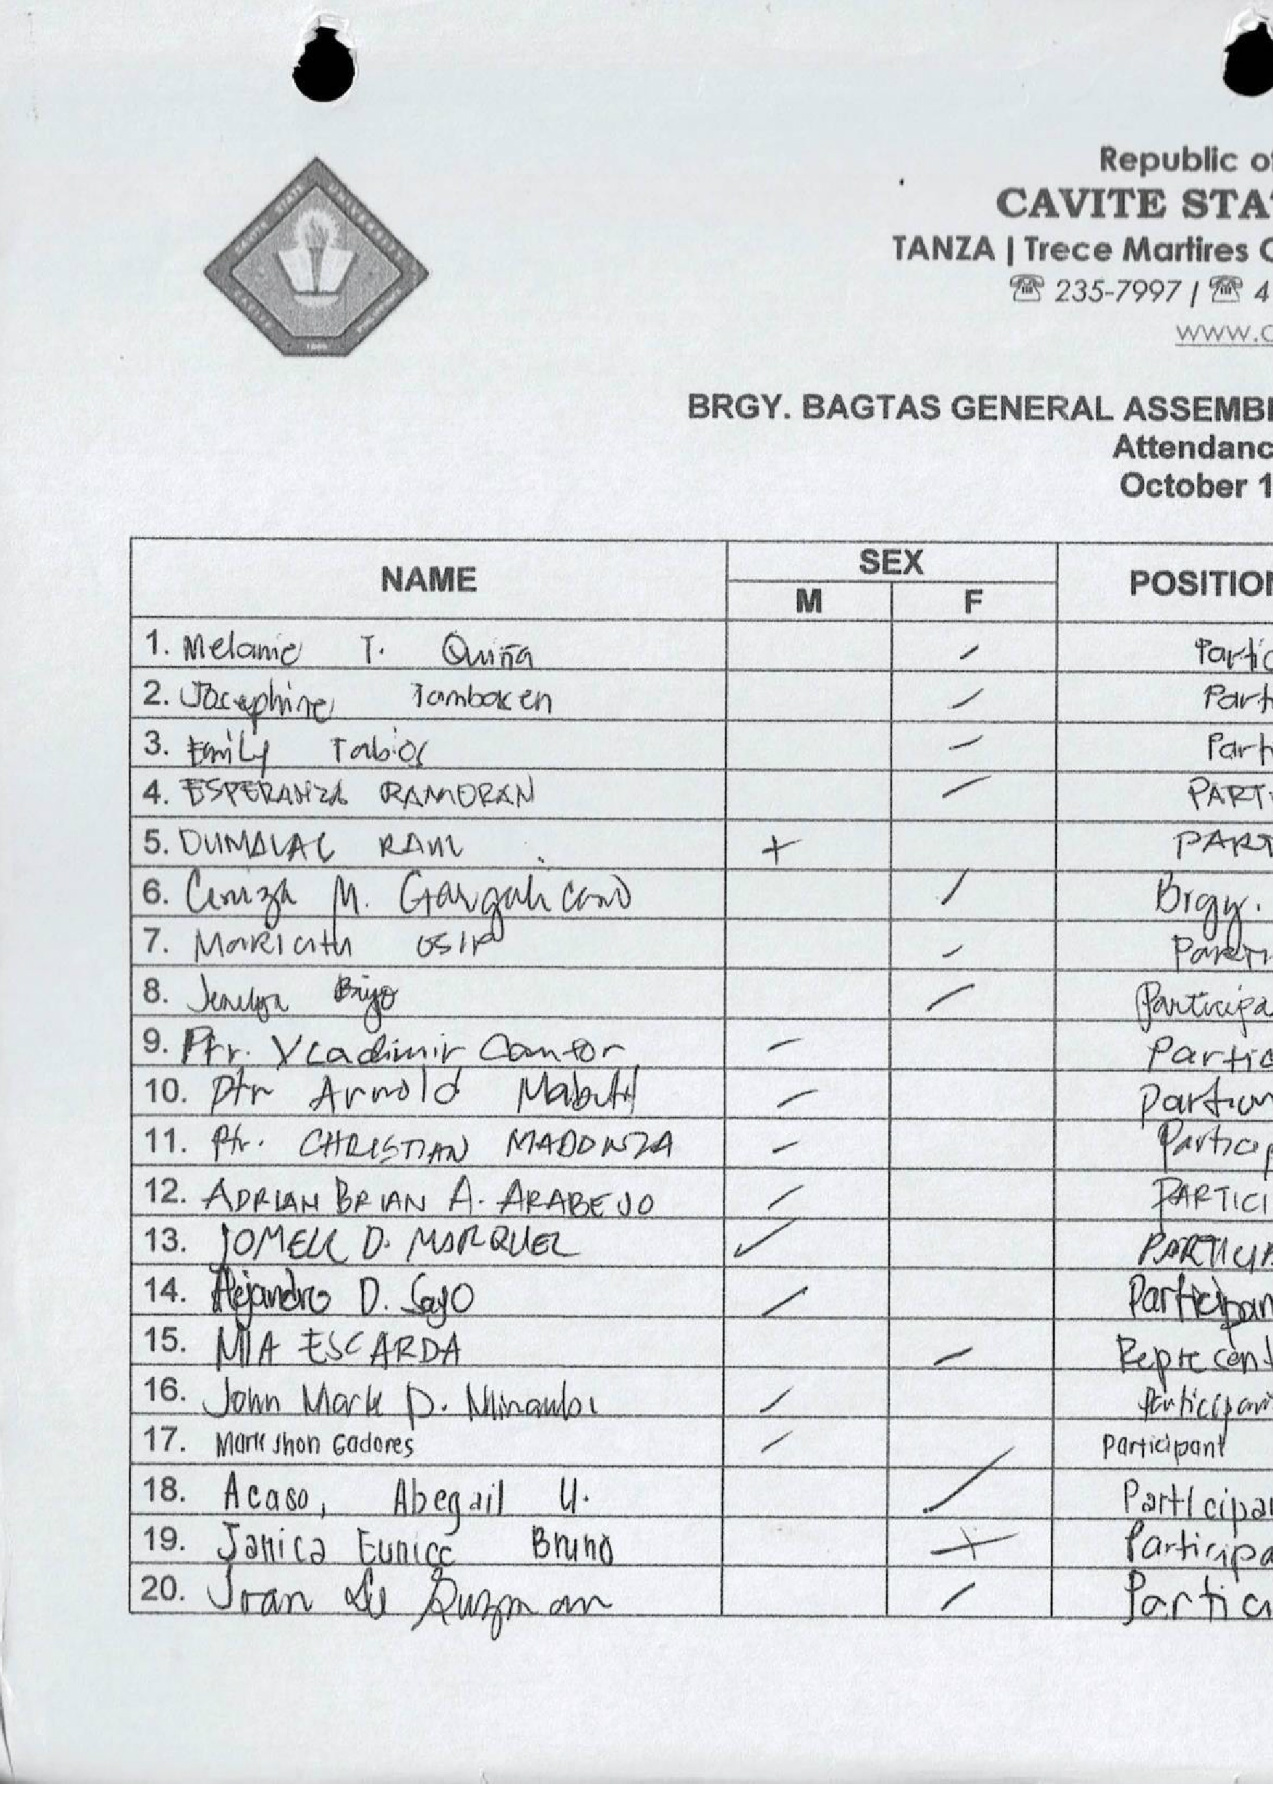 Republic of
CAVITE STA
TANZA | Trece Martires C
☏ 235-7997 | ☏ 4
www.c
BRGY. BAGTAS GENERAL ASSEMBL
Attendanc
October 1
NAME SEX POSITION
M F
1. Melanie T. Quiña / Partic
2. Josephine Tamboken / Part
3. Emily Tabios / Part
4. ESPERANZA RAMORAN / PARTI
5. DUMALAG RAUL + PART
6. M. / Brgy.
7. / Parti
8. Jenelyn Brijo / Participa
9. Ptr. Vladimir Cantor / Partic
10. Ptr Arnold /
11. Ptr. CHRISTIAN MADONZA / Particip
12. ADRIAN BRIAN A. ARABEJO / PARTICI
13. JOMELL D. MARQUEZ ✓
14. Alejandro D. Sayo / Participan
15. MIA ESCARDA / Represent
16. John Mark D. / Participan
17. Mark Jhon Gadores / Participant
18. Acaso, Abegail U. / Participa
19. Janica Eunice Bruno + Participa
20. Joan De Guzman / Partici